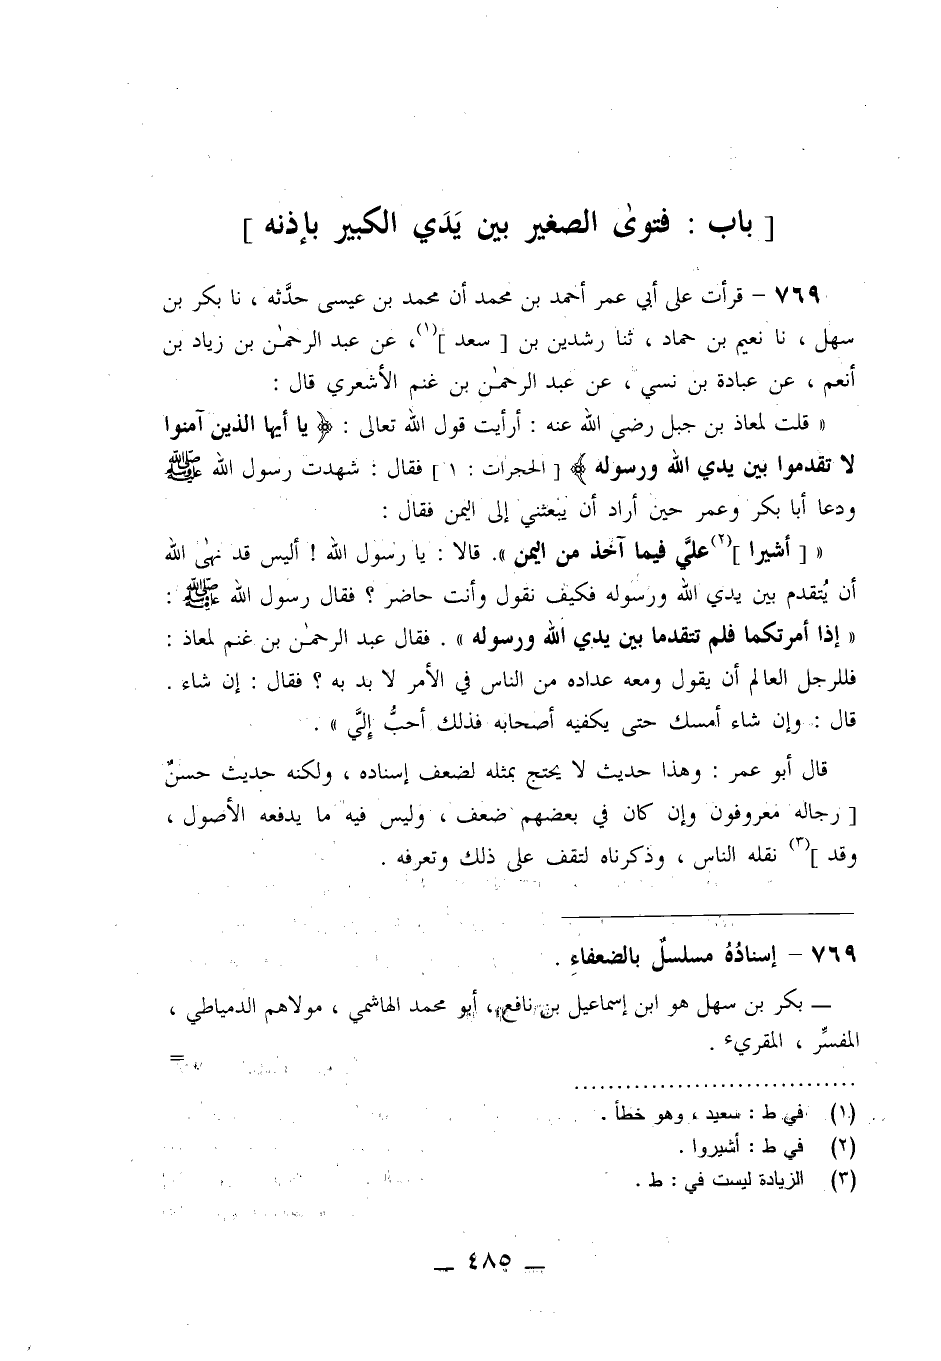 [ باب : فتوىٰ الصغير بين يَدَي الكبير بإذنه ]
٧٦٩ – قرأت على أبي عمر أحمد بن محمد أن محمد بن عيسى حدَّثه ، نا بكر بن
سهل ، نا نعيم بن حماد ، ثنا رشدين بن [ سعد ](١)، عن عبد الرحمٰن بن زياد بن
أنعم ، عن عبادة بن نسي ، عن عبد الرحمٰن بن غنم الأشعري قال :
« قلت لمعاذ بن جبل رضي الله عنه : أرأيت قول الله تعالى : ﴿ يا أيها الذين آمنوا
لا تقدموا بين يدي الله ورسوله ﴾ [ الحجرات : ١ ] فقال : شهدت رسول الله ﷺ
ودعا أبا بكر وعمر حين أراد أن يبعثني إلى اليمن فقال :
« [ أشيرا ](٢) عليَّ فيما آخذ من اليمن ». قالا : يا رسول الله ! أليس قد نهىٰ الله
أن يُتقدم بين يدي الله ورسوله فكيف نقول وأنت حاضر ؟ فقال رسول الله ﷺ :
« إذا أمرتكما فلم تتقدما بين يدي الله ورسوله » . فقال عبد الرحمٰن بن غنم لمعاذ :
فللرجل العالم أن يقول ومعه عداده من الناس في الأمر لا بد به ؟ فقال : إن شاء .
قال : وإن شاء أمسك حتى يكفيه أصحابه فذلك أحبُّ إليَّ » .
قال أبو عمر : وهذا حديث لا يحتج بمثله لضعف إسناده ، ولكنه حديث حسنٌ
[ رجاله معروفون وإن كان في بعضهم ضعف ، وليس فيه ما يدفعه الأصول ،
وقد ](٣) نقله الناس ، وذكرناه لتقف على ذلك وتعرفه .
٧٦٩ – إسنادُهُ مسلسلٌ بالضعفاءِ .
— بكر بن سهل هو ابن إسماعيل بن نافع ، أبو محمد الهاشمي ، مولاهم الدمياطي ،
المفسِّر ، المقريء .
=
(١) في ط : سعيد ، وهو خطأ .
(٢) في ط : أشيروا .
(٣) الزيادة ليست في : ط .
— ٤٨٥ —